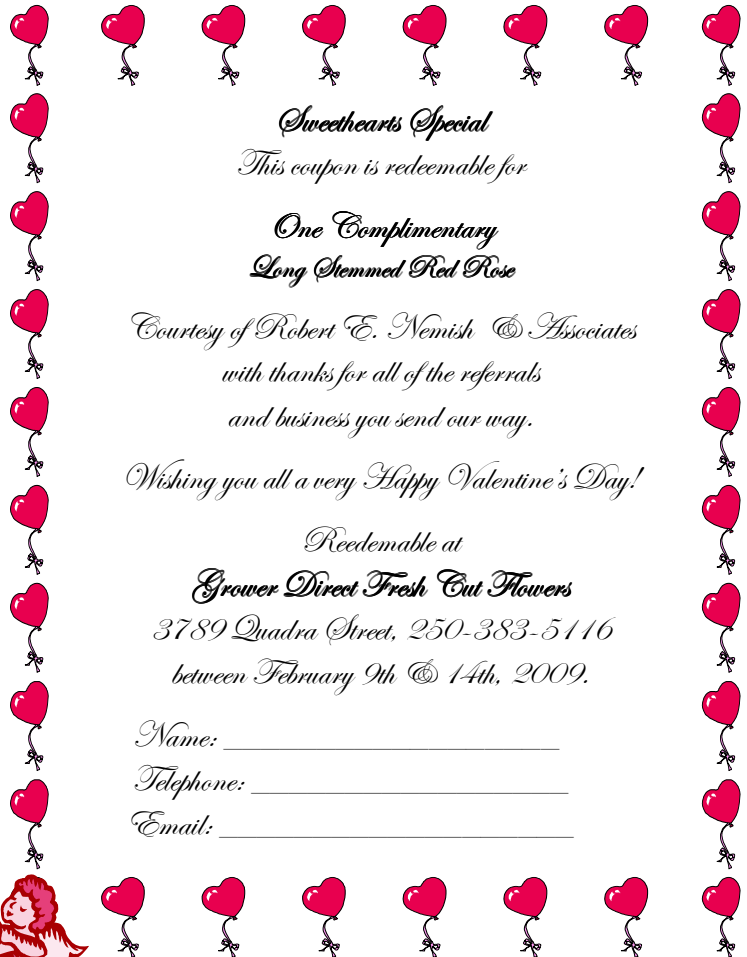 Sweethearts Special
This coupon is redeemable for
One Complimentary
Long Stemmed Red Rose
Courtesy of Robert E. Nemish & Associates
with thanks for all of the referrals
and business you send our way.
Wishing you all a very Happy Valentine's Day!
Reedemable at
Grower Direct Fresh Cut Flowers
3789 Quadra Street, 250-383-5116
between February 9th & 14th, 2009.
Name: ______________________________
Telephone: ____________________________
Email: ________________________________